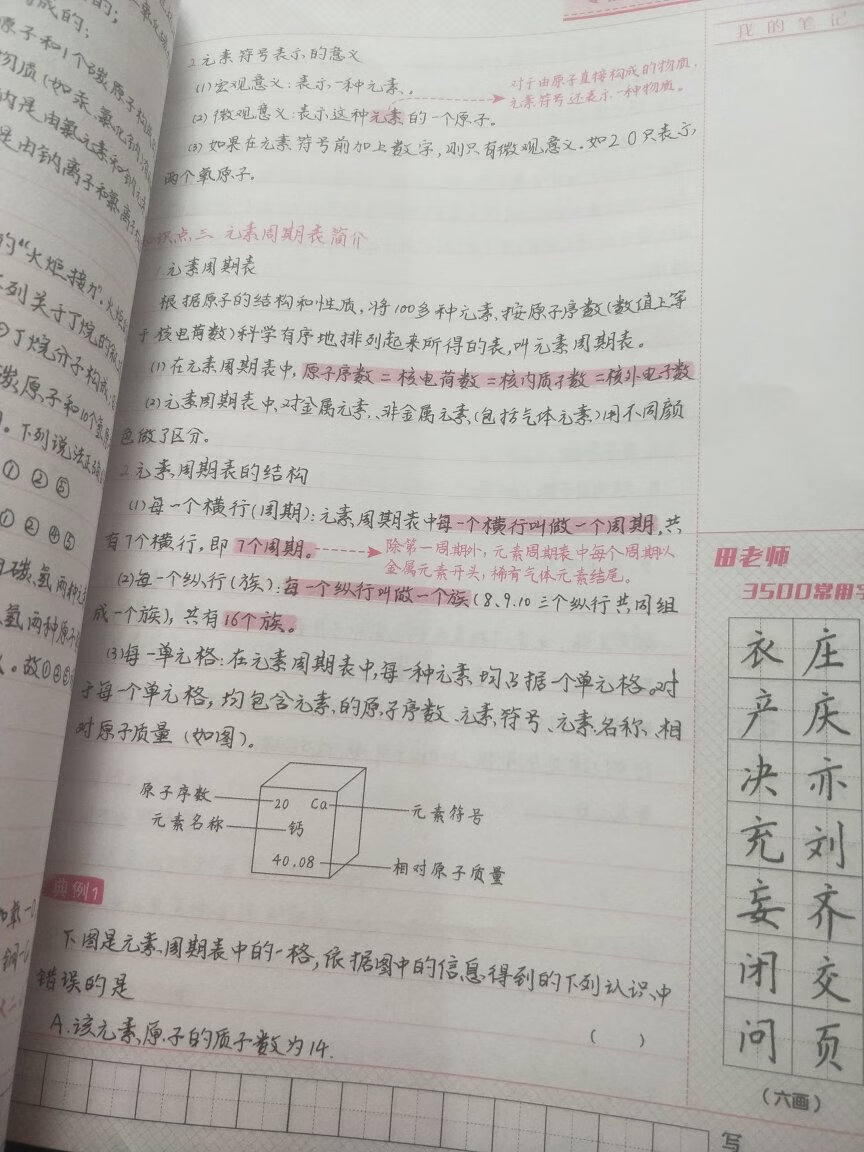 我的笔记
2.元素符号表示的意义
(1)宏观意义:表示一种元素。
(2)微观意义:表示这种元素的一个原子。
对于由原子直接构成的物质,
元素符号还表示一种物质。
(3)如果在元素符号前加上数字,则只有微观意义.如2O只表示
两个氧原子。
识点三 元素周期表简介
1.元素周期表
根据原子的结构和性质,将100多种元素按原子序数(数值上等
于核电荷数)科学有序地排列起来所得的表,叫元素周期表。
(1)在元素周期表中,原子序数=核电荷数=核内质子数=核外电子数
(2)元素周期表中对金属元素、非金属元素(包括气体元素)用不同颜
色做了区分。
2.元素周期表的结构
(1)每一个横行(周期):元素周期表中每一个横行叫做一个周期,共
有7个横行,即7个周期。
除第一周期外,元素周期表中每个周期以
金属元素开头,稀有气体元素结尾。
(2)每一个纵行(族):每一个纵行叫做一个族(8、9、10三个纵行共同组
成一个族),共有16个族。
(3)每一单元格:在元素周期表中,每一种元素均占据一个单元格。对
于每一个单元格,均包含元素的原子序数、元素符号、元素名称、相
对原子质量(如图)。
原子序数
元素名称
20 Ca
钙
40.08
元素符号
相对原子质量
典例1
下图是元素周期表中的一格,依据图中的信息得到的下列认识中
错误的是
( )
A.该元素原子的质子数为14.
田老师
3500常用字
衣 庄
产 庆
决 亦
充 刘
妄 齐
闭 交
问 页
(六画)
写
原子和1个碳原子构成
物质(如汞、氯化钠
内是由氯元素和钠元素
是由钠离子和氯离子
的"火炬接力".火炬
下列关于丁烷的叙
①丁烷分子构成
碳原子和10个氢原
。下列说法正确
① ② ⑤
① ② ④ ⑤
碳、氢两种
氢两种原子
。故①②⑤